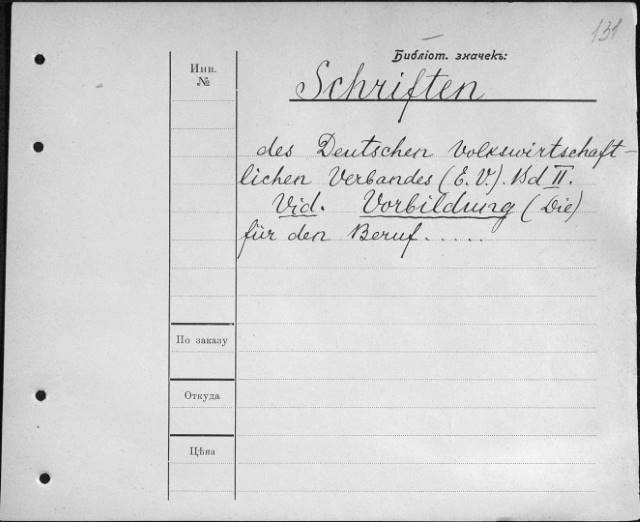 131
Библіот. значекъ:
Инв.
№
Schriften
des Deutschen Volkswirtschaft-
lichen Verbandes (E. V.). Bd II.
Vid. Vorbildung (Die)
für den Beruf.....
По заказу
Откуда
Цѣна